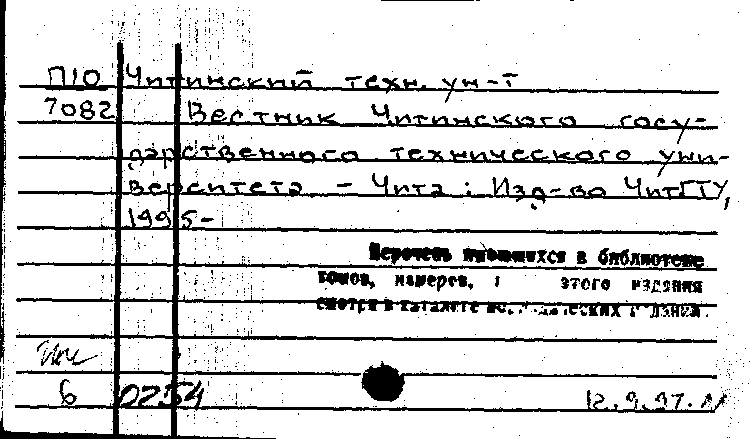 П10 Читинский техн. ун-т
7082 Вестник Читинского госу-
дарственного технического уни-
верситета - Чита : Изд-во ЧитГТУ,
1995-
Перечень имеющихся в библиотеке
томов, номеров, этого издания
смотри в каталоге периодических изданий.
6 0254
12.9.97.